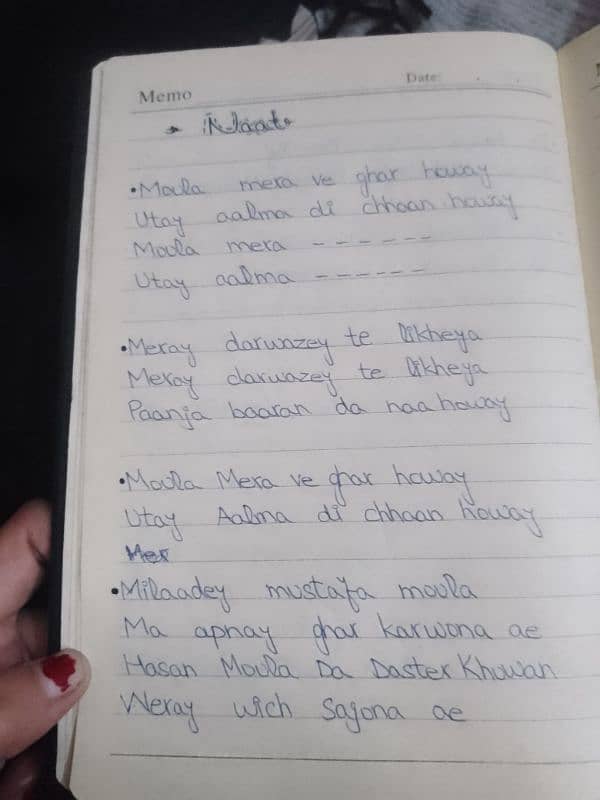 Memo
Date:
• Moula mera ve ghar howay
Utay aalma di chhaan howay
Moula mera ------
Utay aalma ------
• Meray darwazey te likheya
Meray darwazey te likheya
Paanja baaran da naa howay
• Moula Mera ve ghar howay
Utay Aalma di chhaan howay
Mer
• Milaadey mustafa moula
Ma apnay ghar karwona ae
Hasan Moula Da Daster Khuwan
Weray wich Sajona ae